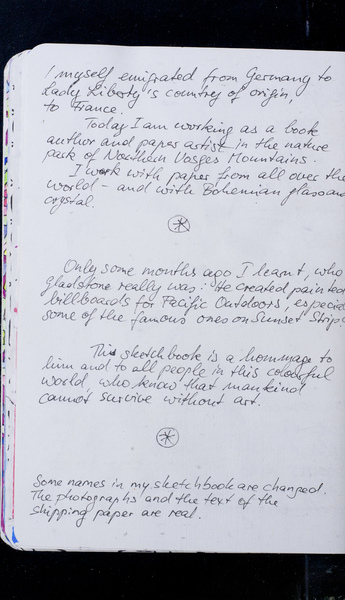 I myself emigrated from Germany to
Lady Liberty's country of origin,
to France.
Today I am working as a book
author and paper artist in the nature
park of Northern Vosges Mountains.
I work with paper from all over the
world – and with Bohemian glass and
crystal.
Only some months ago I learnt, who
gladstone really was: He created painted
billboards for Pacific Outdoors, especial
some of the famous ones on Sunset Strip
This sketchbook is a hommage to
him and to all people in this colourful
world, who know that mankind
cannot survive without art.
Some names in my sketchbook are changed.
The photographs and the text of the
shipping paper are real.